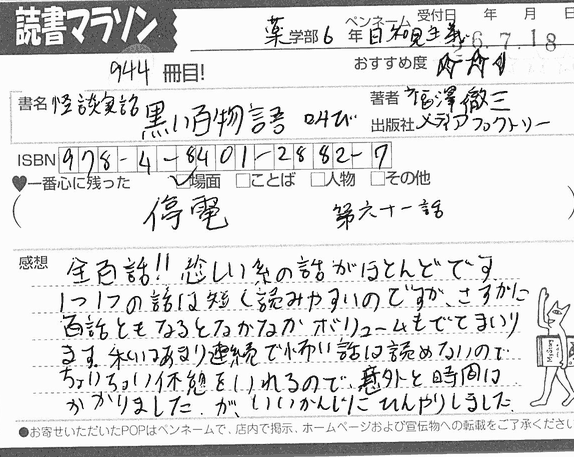 読書マラソン
薬学部6年 ペンネーム 日和見主義 受付日 年 月 日
26.7.18
944冊目!
おすすめ度 ☆☆☆
書名 怪談実話 黒い百物語 叫び
著者 福澤徹三
出版社 メディアファクトリー
ISBN 978-4-8401-2882-7
♥一番心に残った ☑場面 □ことば □人物 □その他
( 停電 第六十一話
感想
全百話!! 悲しい系の話がほとんどです
1つ1つの話は短く読みやすいのですが、さすがに
百話ともなるとなかなかボリュームもでてまいり
ます。私はあまり連続で怖い話は読めないので
ちょいちょい休憩をいれるので、意外と時間は
かかりました。が、いいかんじにひんやりしました
●お寄せいただいたPOPはペンネームで、店内で掲示、ホームページおよび宣伝物への転載をご了承くださ